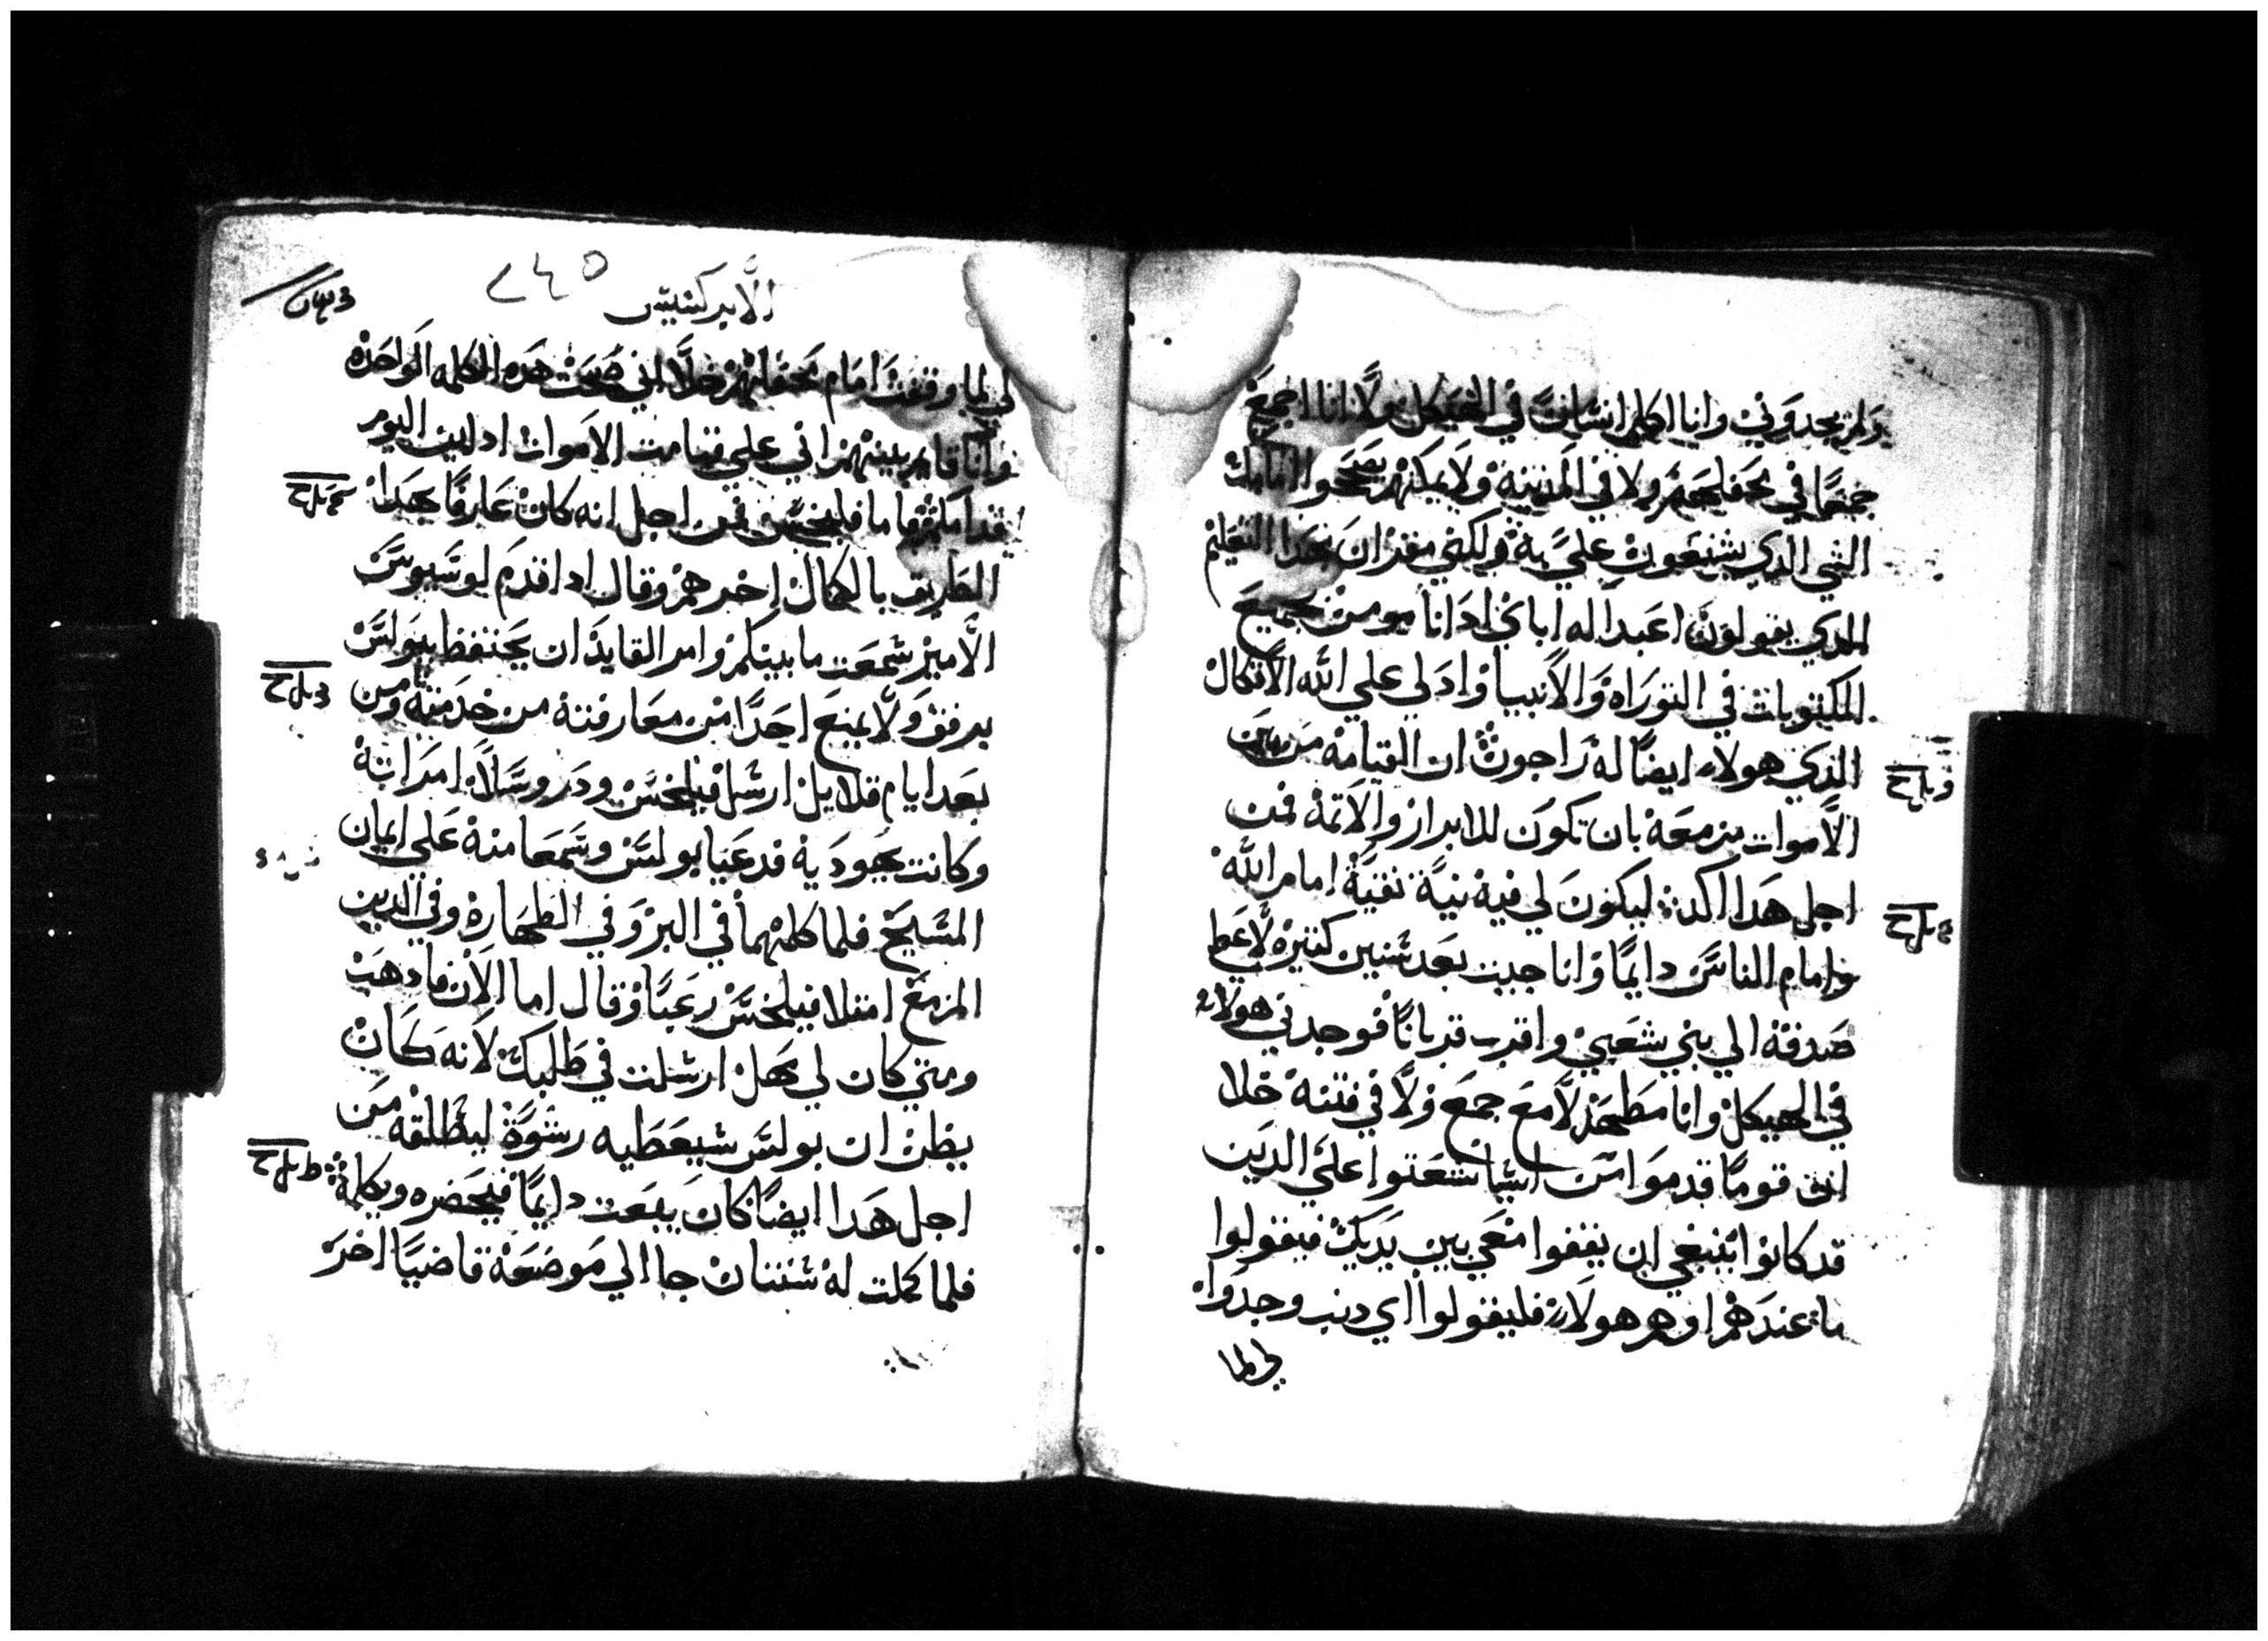 ولم يجدوني وانا اكلم انسانًا في الهيكل ولا انا اجمع
جمعًا في محفلهم ولا في المدينة ولا يمكنهم يصححوا امامك
الشي الدي يشنعون علي به ولكني مقر ان بهدا التعليم
الدي يقولون اعبد اله اباي اد انا مومن بجميع
المكتوبات في التوراه والانبيا واد لي علي الله الاتكال
الدي هولاء ايضًا له راجون ان القيامه من بين
الاموات مزمعة بان تكون للابرار والاتمة فمن
اجل هدا اكد ليكون لي فيه نية نقية امام الله
وامام الناس دايمًا وانا جيت بعد سنين كتيره لاعط
صدقة الي بني شعبي واقرب قربانًا فوجدني هولاء
في الهيكل وانا مطهر لا مع جمع ولا في فتنة خلا
ان قومًا قدموا من اسيا شعتوا علي الدين
قد كانوا ينبغي ان يقفوا معي بين يديك فيقولوا
ما عندهم او هم هولاء فليقولوا اي دنب وجدوا
لي لما
الابركسيس
٢٤٥
لي لما وقفت امام محفلهم خلا اني صحت هده الكلمه الواحده
وانا قايم بينهم اني علي قيامت الاموات ادان اليوم
قدامكم فاما فيلخس فمن اجل انه كان عارفًا بهدا
الطريق بالكمال اخرهم وقال ادا قدم لوسيوس
الامير سمعت ما بينكم وامر القايد ان يحتفظ ببولس
برفق ولا يمنع احدًا من معارفته من خدمته ومن
بعد ايام قلايل ارسل فيلخس ودروسلا امراته
وكانت يهودية فدعيا بولس وسمعا منه علي ايمان
المسيح فلما كلمهما في البر وفي الطهارة وفي الدين
المزمع امتلا فيلخس رعبًا وقال اما الان فادهب
ومتي كان لي مهل ارسلت في طلبك لانه كان
يظن ان بولس سيعطيه رشوة ليطلقه من
اجل هدا ايضًا كان يبعت دايمًا فيحضره ويكلمه
فلما كملت له سنتان جا الي موضعة قاضيًا اخر